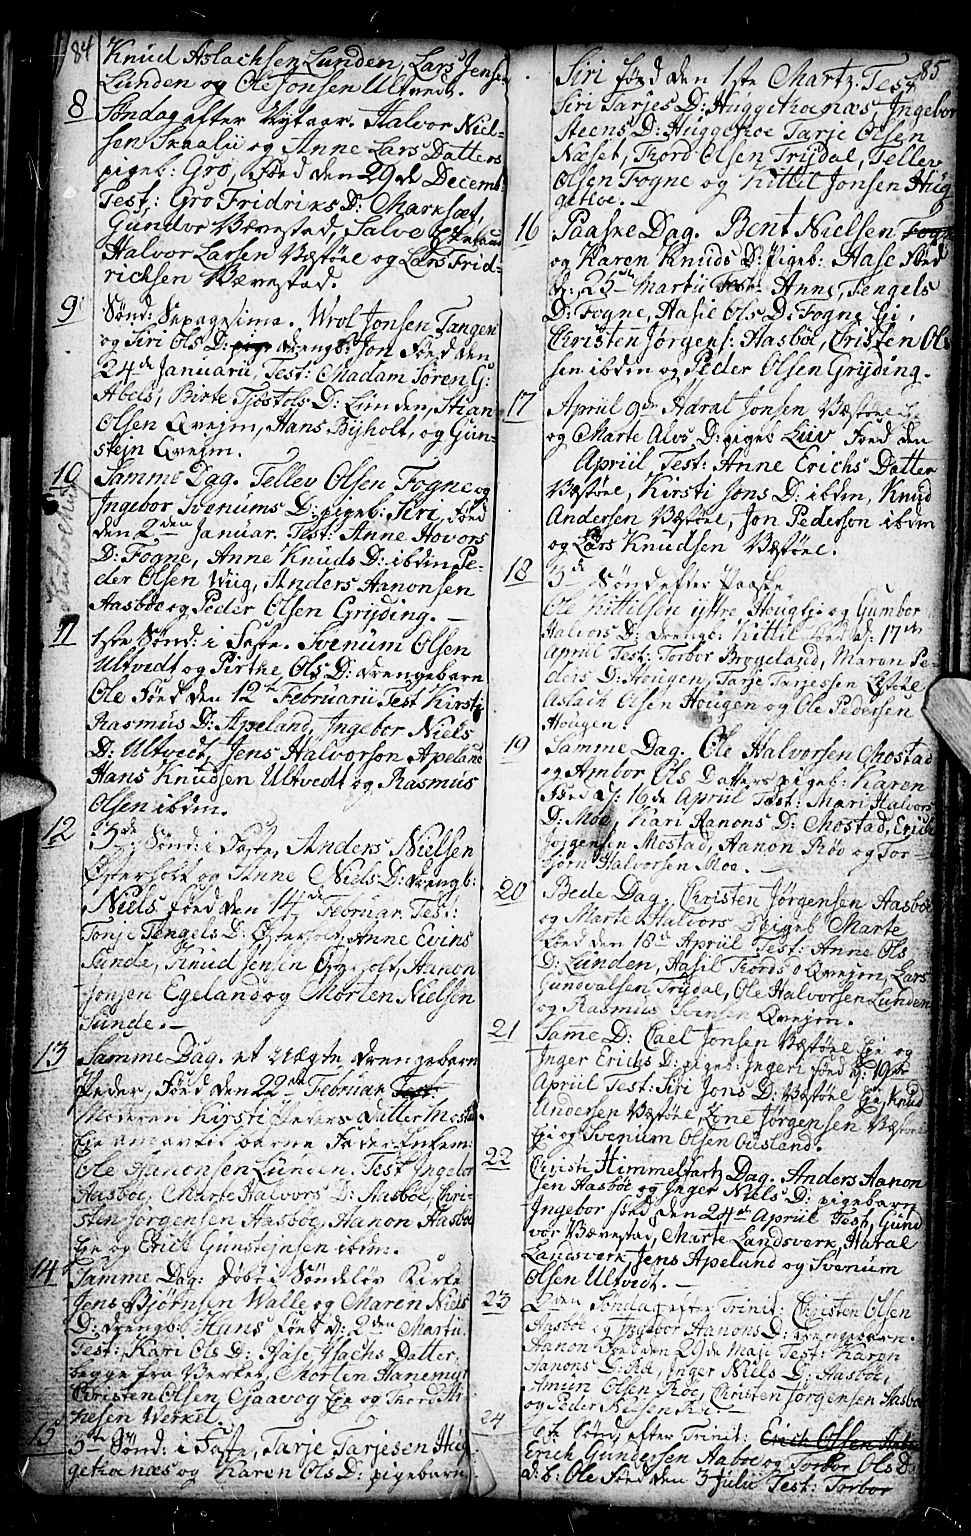 84
Knud Aslachsen Lunden, Lars Jensen
Lunden og Ole Jonsen Ultvedt.
8 Søndag efter Nytaar. Halvor Niel-
sen Skaalii og Anne Lars Datters
pigeb: Gro, Føed den 29de Decemb:
Test: Gro Fridriks D: Marksæt,
Gundor Bævestad, Salve
Halvor Larsen Væstøel og Lars Frid-
richsen Bævestad.
9 Sønd: Sepagesima. Wrol Jonsen Tangen
og Siri Ols D: pige drengb: Jon Føed den
24de Januarii, Test: Madam Søren G:
Abels, Birte Tjøstols D: Lunden, Stian
Olsen Qvejm, Hans Bijholt, og Gun-
stejn Qvejm.
10 Samme Dag. Tellev Olsen Fogne og
Ingebor Svenums D: pigeb: Siri, føed
den 2den Januar. Test: Anne Hovors
D: Fogne, Anne Knuds D: ibdm Pe-
der Olsen Wiig, Anders Aanonsen
Aasbøe og Peder Olsen Grijding. —
11 1ste Sønd: i Faste. Svenum Olsen
Ultvedt og Birthe Ols D: drengebarn
Ole Føed den 12te Februarii Test Kirsti
Rasmus D: Apeland, Ingebor Niels
D: Ultvedt, Jens Halvorson Apeland
Hans Knudsen Ultvedt og Rasmus
Olsen ibdm.
12 3de Sønd: i Faste, Anders Nielsen
Østerholt og Anne Niels D: drengb:
Niels Føed den 14de Februar. Test:
Tonje Tengels D: Østerholt, Anne Evins
Sunde, Knud Jensen Østerholt, Aanon
Jonsen Egeland og Morten Nielsen
Sunde. —
13 Samme Dag. et uægte drengebarn
Peder, Føed den 22de Februar Test
Moderen Kirsti Peders Datter Mostad
Eje barne Fader
Ole Aanonsen Lunden. Test Ingebor
Aasbøe, Marte Halvors D: Aasbøe, Chri-
sten Jørgensen Aasbøe, Aanon Aasbøe
Eje og Erick Gunstejnsen ibdm.
14 Samme Dag: døbt i Søndeløv Kirke
Jens Bjørnsen Walle og Maren Niels
D: drengb: Hans Føed d: 2den Martii.
Test: Kari Ols D: Aase Isachs Datter,
begge fra Værket, Morten Hanemyr
Christen Olsen Gjaavog Eje og Thord
nesen Werket.
15 5te Sønd: i Faste, Tarje Tarjesen Hug
gekoenæs og Karen Ols D: pigebarn
85
Siri føed den 1ste Martz. Test,
Siri Tarjes D: Huggekoenæs, Ingebor
Steens D: Huggekoe Tarje Olsen
Næset, Tord Olsen Trijdal, Tellev
Olsen Fogne og Kittil Jonsen Hug
gekoe. —
16 Paaske Dag. Bent Nielsen Fogne
og Karen Knuds D: pigeb: Aase Føed
d: 25de Martii Test: Anne Tengels
D: Fogne, Aasie Ols D: Fogne Eje,
Christen Jørgens: Aasbøe, Christen Ol-
sen ibdm og Peder Olsen Grijding.
17 Apriil 9de Haral Jonsen Væstøel Eje
og Marte Alvs D: pigeb Liiv Føed den
Apriil Test: Anne Erichs Datter
Væstøel, Kirsti Jons D: ibdm, Knud
Andersen Væstøel, Jon Pederson ibdm
og Lars Knudsen Væstøel.
18 3de Sønd efter Paaske
Ole Kittilsen ijttre Hougen og Gumbor
Halvors D: drengb: Kittil Føed d: 17de
Apriil Test: Torbor Brogeland, Maren Pe-
ders D: Hougen, Tarje Tarjessen Østøel
Aslach Olsen Hougen og Ole Pedersen
Hougen.
19 Samme Dag. Ole Halvorsen Mostad
og Ambor Ols Datters pigeb: Karen
Føed d: 16de Apriil Test: Mari Halvors
D: Moe, Kari Aanons D: Mostad, Erick
Jørgensen Mostad, Aanon Rød og Tor-
bjørn Halvorsen Moe. —
20 Bede Dag. Christen Jørgensen Aasbøe
og Marte Halvors D: pigeb Marte
Føed den 18de Apriil Test: Anne Ols
D: Lunden, Aasil Tords D Qvejm, Lars
Gundvalsen Trijdal, Ole Halvorsen Lunden
og Rasmus Svensen Qvejm.
21 Same D: Carl Jonsen Væstøel Eje og
Inger Erichs D: pigeb: Ingeri føed d: 19de
Apriil Test: Siri Jons D: Væstøel Eje, Knud
Andersen Væstøel, Jørgensen Væstøel
Eje og Svenum Olsen Ousland.
22 Christi Himmelfartz Dag. Anders Aanon
sen Aasbøe og Inger Niels D: pigebarn
Ingebor føed den 24de Apriil Test, Gund
vor Bævestad, Marte Landsverk, Haral
Landsverk Jens Apelund og Svenum
Olsen Ultvedt. —
23 2den Søndag efter Trinit: Christen Olsen
Aasbøe og Ingebor Aanons D: drengebarn.
Aanon Føed den 29de Maje Test: Karen
Aanons D: Røe, Inger Niels D: Aasbøe,
Amun Olsen Røe, Christen Jørgensen Aasbøe
og Peder
24 Sønd, efter Trinit: Erich Olsen
Erich Gundersen Aabøe og Torbor Ols D:
d: b: Ole Føed den 3 Julii Test: Torbor